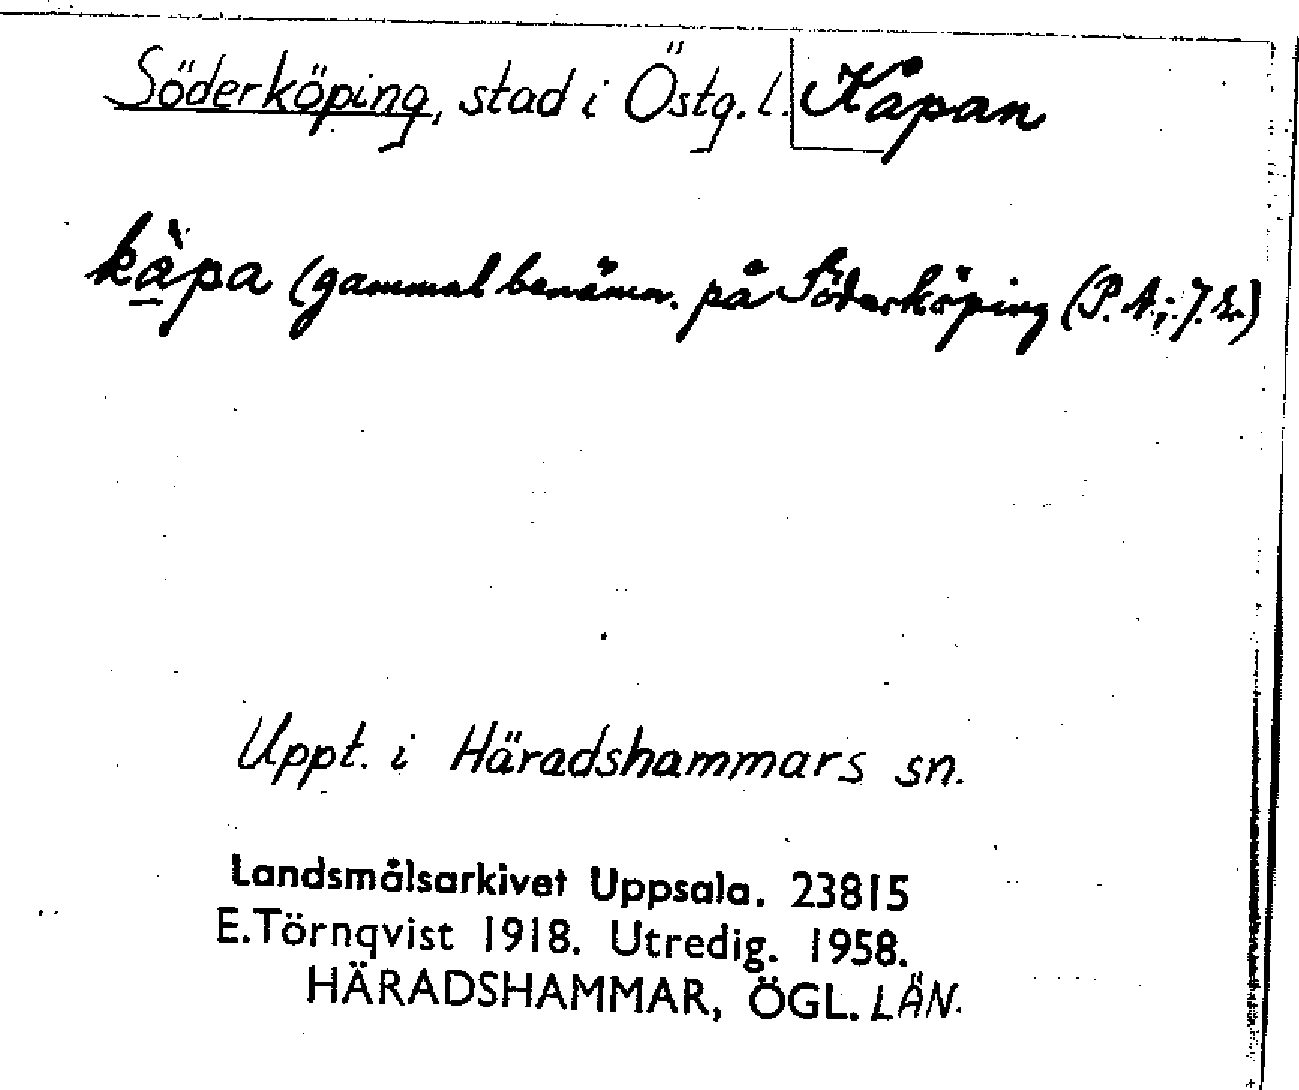 Söderköping, stad i Östg. l. Kåpan
kàpa (gammal benämn. på Söderköping (P. A.; J. Er.)
Uppt. i Häradshammars sn.
Landsmålsarkivet Uppsala. 23815
E.Törnqvist 1918. Utredig. 1958.
HÄRADSHAMMAR, ÖGL. LÄN.